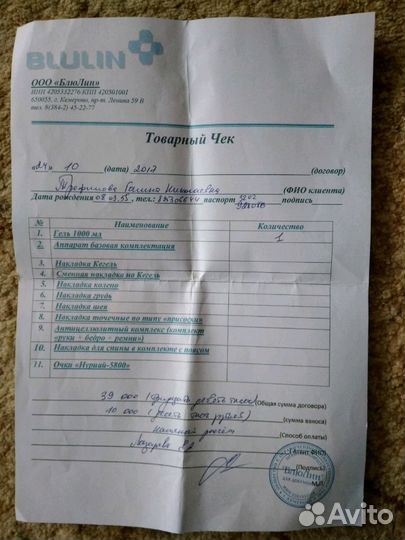 BLULIN
ООО «БлюЛин»
ИНН 4205332276 КПП 420501001
650055, г. Кемерово, пр-т. Ленина 59 В
тел. 8(384-2) 45-22-77
Товарный Чек
«24» 10 (дата) 2017 (договор)
Трофимова Галина Николаевна (ФИО клиента)
Дата рождения 08.03.55, тел.: паспорт подпись
№ Наименование Количество
1. Гель 1000 мл
2. Аппарат базовая комплектация 1
3. Накладка Кегель
4. Сменная накладка на Кегель
5. Накладка колено
6. Накладка грудь
7. Накладка шея
8. Накладка точечные по типу «присоски»
9. Антицеллюлитный комплекс (комплект «руки + бедро + ремни»)
10. Накладка для спины в комплекте с поясом
11. Очки «Нуршай-5800»
39 000 (тридцать девять тысяч) (Общая сумма договора)
10 000 (десять тысяч рублей) (сумма взноса)
наличный расчёт (Способ оплаты)
(Агент ФИО)
(Подпись)
М.П.
"БлюЛин"
Avito